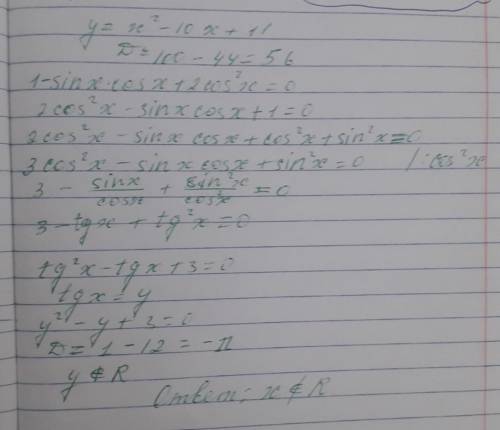 y = x² - 10x + 11
D = 100 - 44 = 56
1 - sinx·cosx + 2cos²x = 0
2cos²x - sinx cosx + 1 = 0
2cos²x - sinx cosx + cos²x + sin²x = 0
3cos²x - sinx cosx + sin²x = 0 /: cos²x
3 - sinx/cosx + sin²x/cos²x = 0
3 - tgx + tg²x = 0
tg²x - tgx + 3 = 0
tgx = y
y² - y + 3 = 0
D = 1 - 12 = -11
y ∉ R
Ответ: x ∉ R